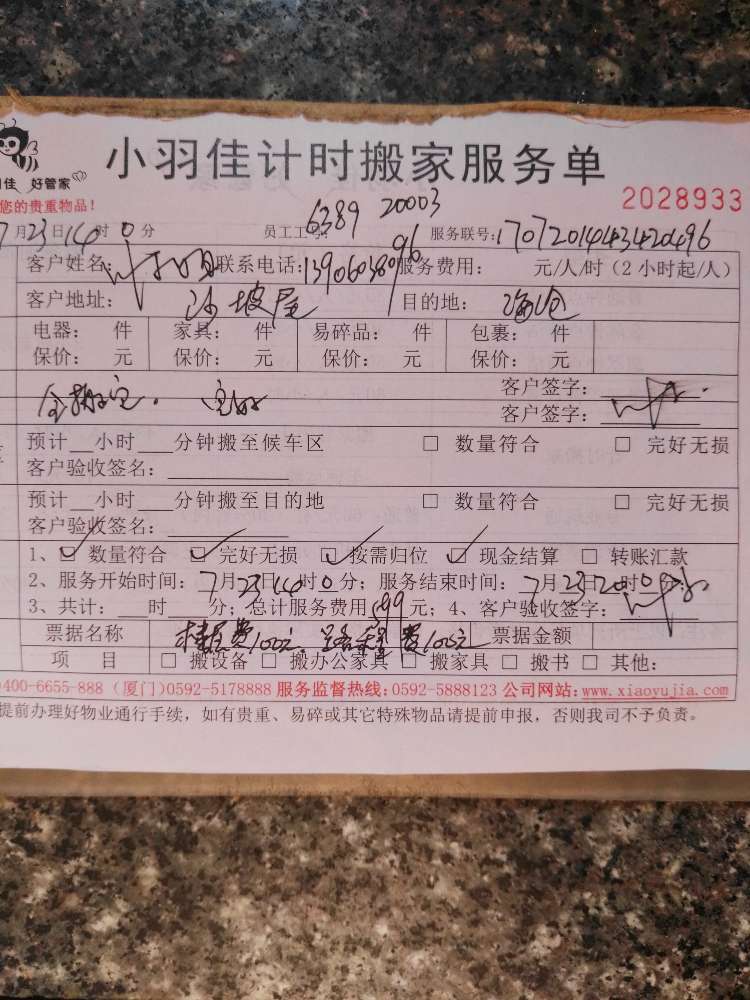 小羽佳计时搬家服务单
佳 好管家
您的贵重物品！
2028933
7月23日14时0分 员工工号: 6389 20003 服务联号: 170720144343420496
客户姓名: 联系电话: 服务费用: 元/人/时（2小时起/人）
客户地址: 沙坡尾 目的地: 海仓
电器: 件 家具: 件 易碎品: 件 包裹: 件
保价: 元 保价: 元 保价: 元 保价: 元
客户签字:
客户签字:
预计__小时___分钟搬至候车区 □ 数量符合 □ 完好无损
客户验收签名:
预计__小时___分钟搬至目的地 □ 数量符合 □ 完好无损
客户验收签名:
1、☑ 数量符合 ☑ 完好无损 ☑ 按需归位 ☑ 现金结算 □ 转账汇款
2、服务开始时间: 7月23日14时0分; 服务结束时间: 7月23日20时0分;
3、共计: 时 分; 总计服务费用599元; 4、客户验收签字:
票据名称 楼层费100元. 费100元 票据金额
项 目 □ 搬设备 □ 搬办公家具 □ 搬家具 □ 搬书 □ 其他:
400-6655-888（厦门）0592-5178888 服务监督热线: 0592-5888123 公司网站: www.xiaoyujia.com
提前办理好物业通行手续，如有贵重、易碎或其它特殊物品请提前申报，否则我司不予负责。